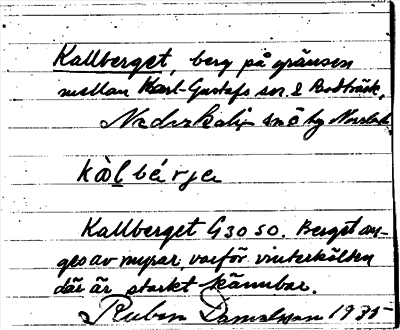 Kallberget, berg på gränsen
mellan Karl-Gustafs sn. & Bodträsk,
Nederkalix snö by Norrb
kàl bérje
Kallberget G30 SO. Berget an-
ges av myrar varför vinterkölden
där är starkt kännbar.
Ruben Danielsson 1935